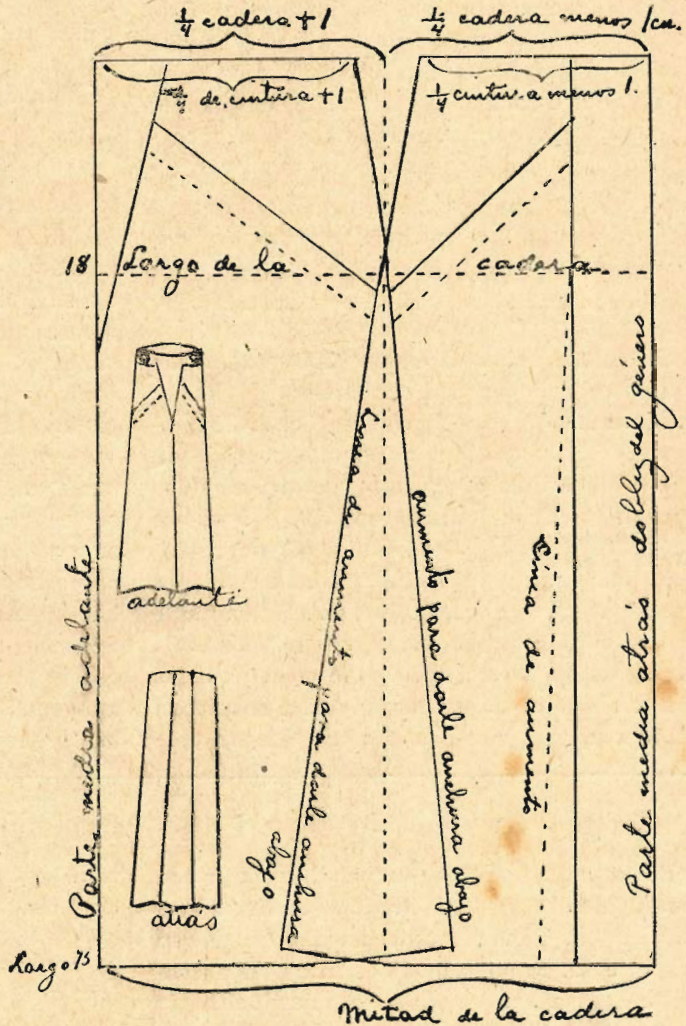 1/4 cadera + 1
1/4 cadera menos 1 cm.
1/4 de cintura + 1
1/4 cintura menos 1.
18 Largo de la cadera
adelante
atrás
Parte media adelante
Linea de aumento para darle anchura
abajo
aumento para darle anchura abajo
Linea de aumento
Parte media atrás doblez del género
Largo 75
Mitad de la cadera